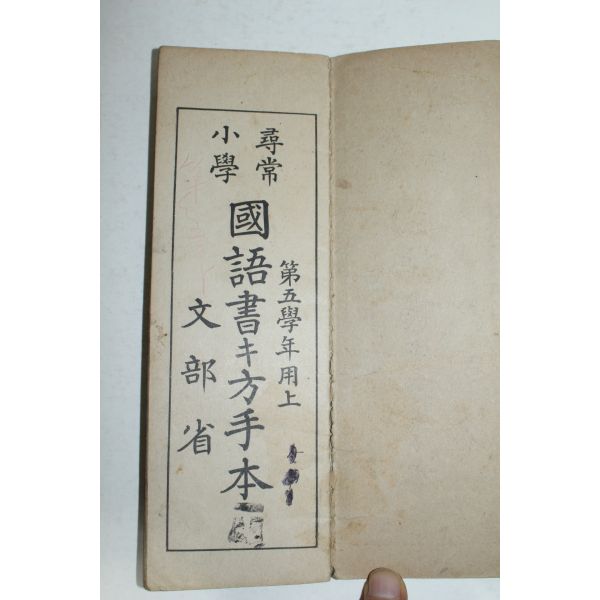 尋常
小學
國語書キ方手本
第五學年用上
文部省